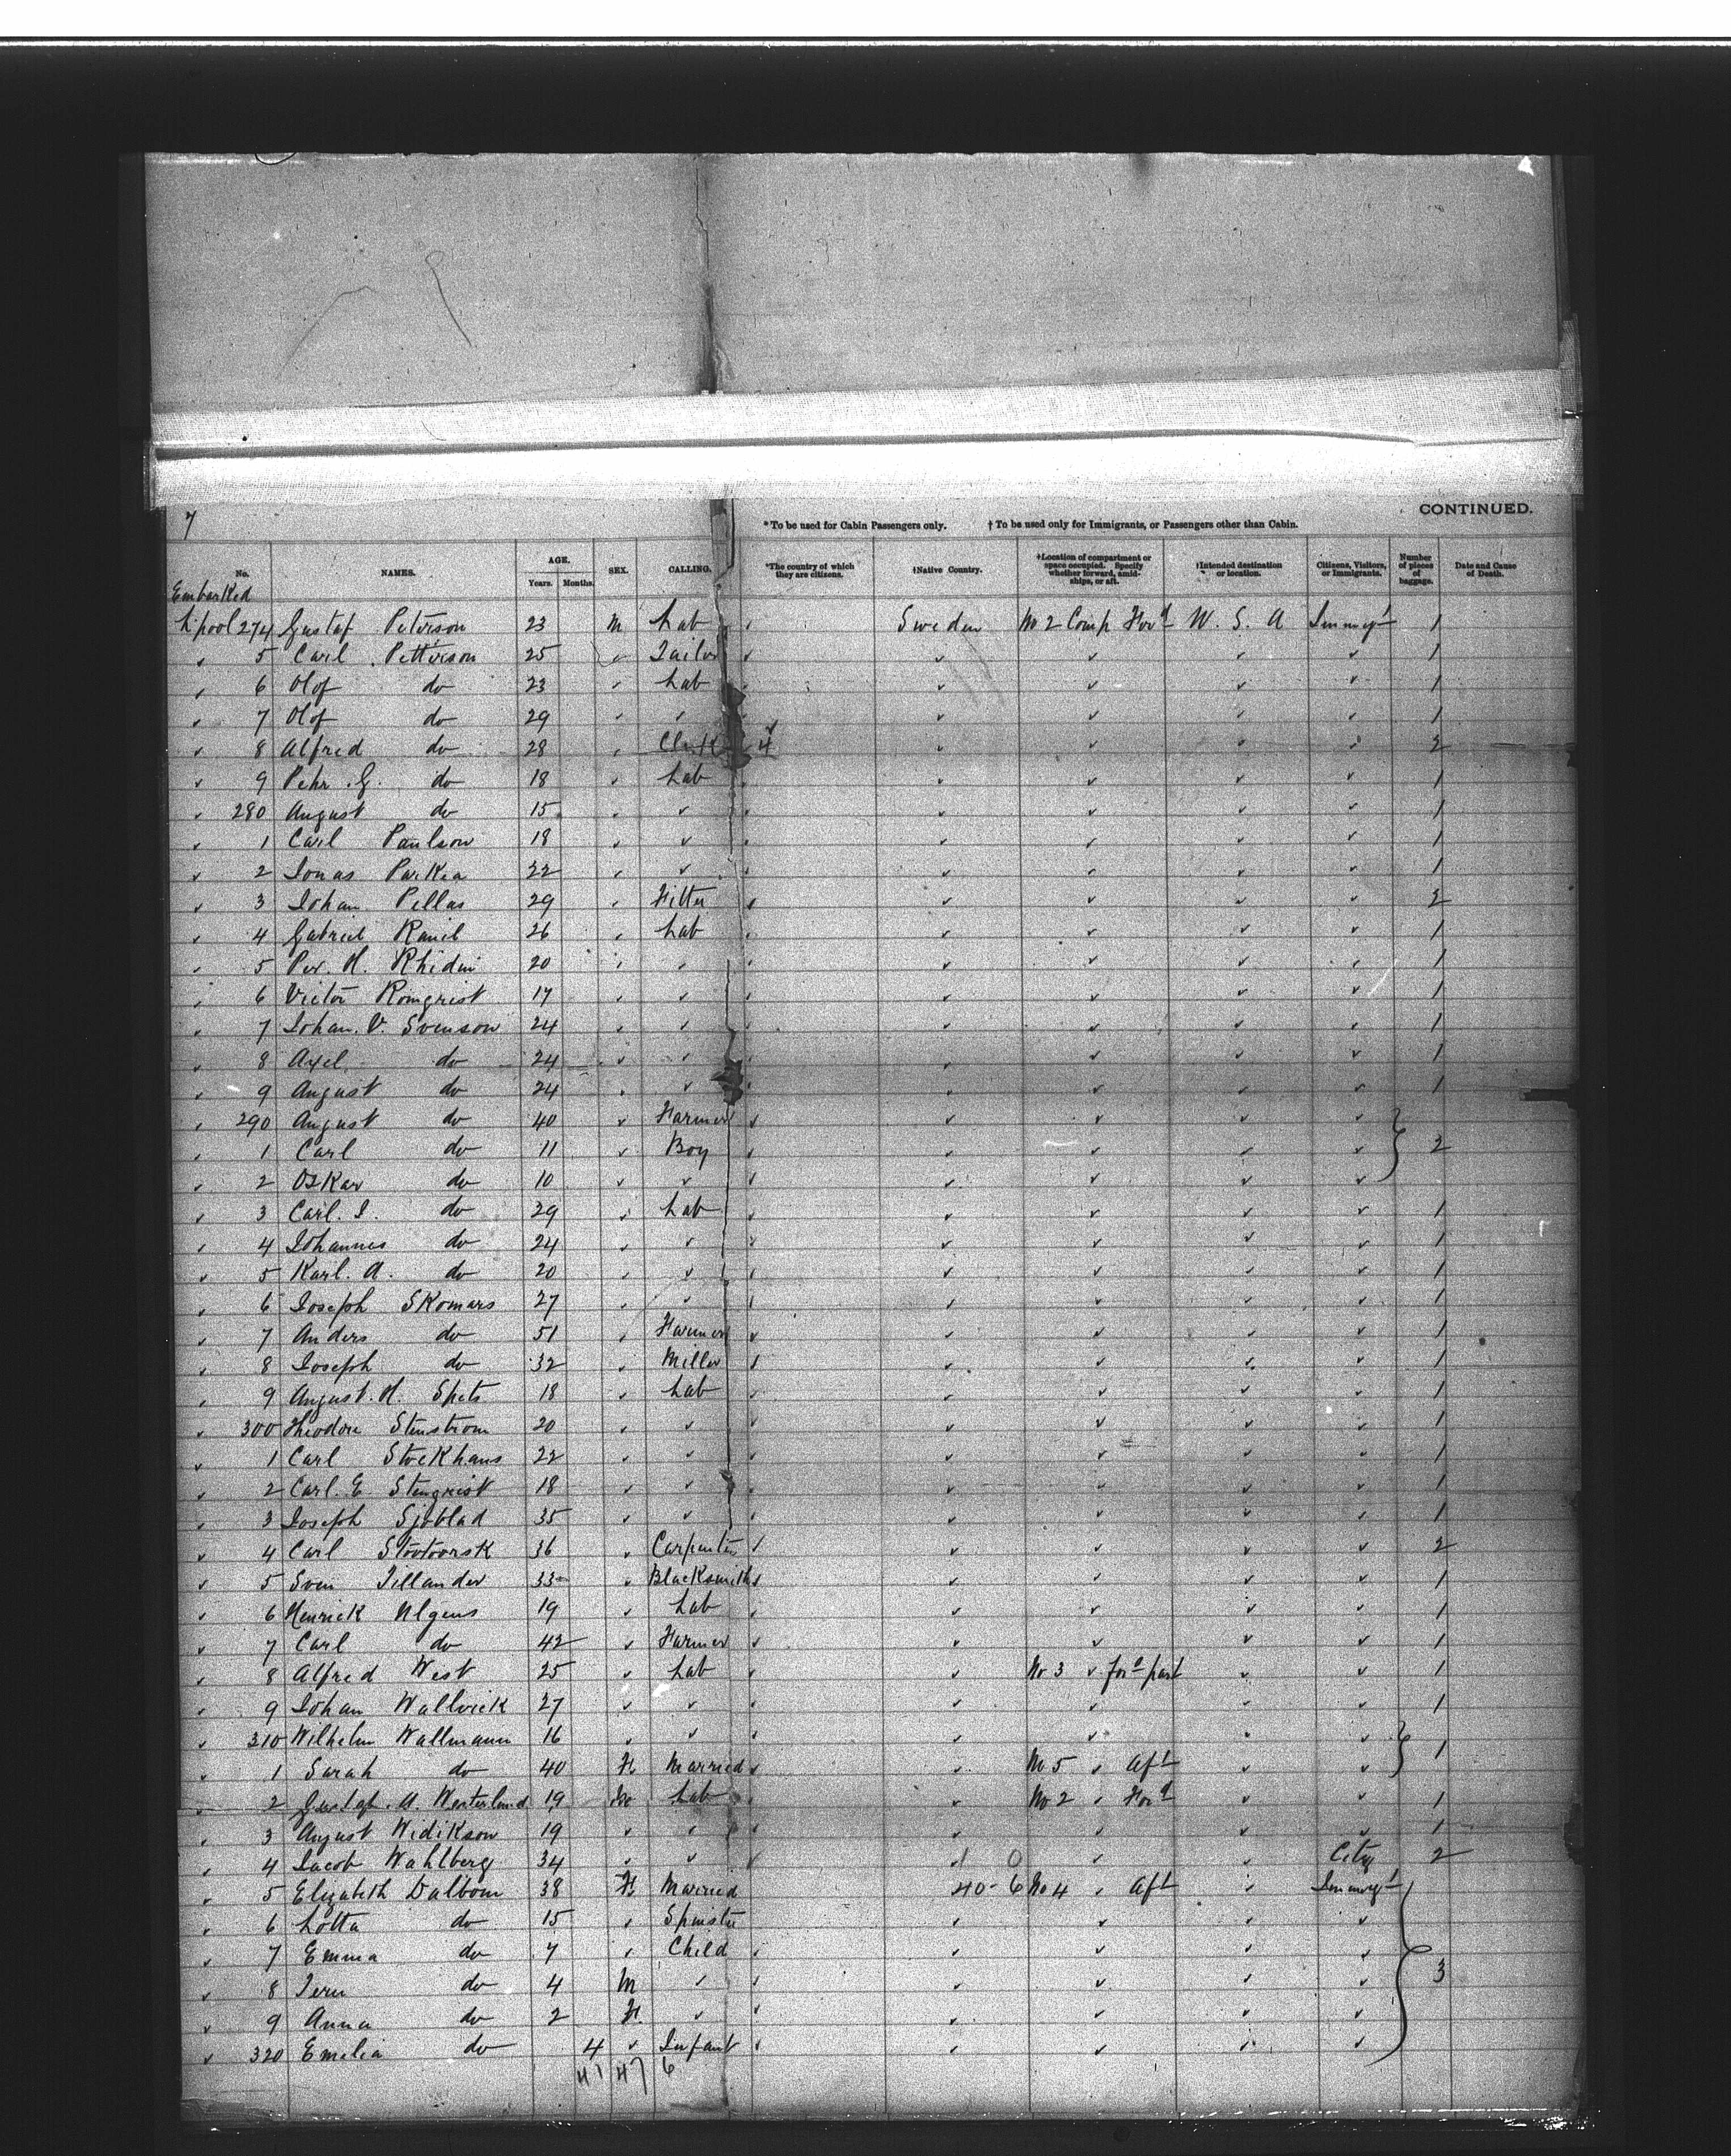 7
CONTINUED.
*To be used for Cabin Passengers only. †To be used only for Immigrants, or Passengers other than Cabin.
No. NAMES. AGE. Years. Months. SEX. CALLING. *The country of which they are citizens. †Native Country. †Location of compartment or space occupied. Specify whether forward, amidships, or aft. †Intended destination or location. Citizens, Visitors, or Immigrants. Number of pieces of baggage. Date and Cause of Death.
Embarked
L'pool 274 Gustaf Peterson 23 M Lab Sweden No 2 Comp For'd U. S. A Immegt 1
✓ 5 Carl Petterson 25 ✓ Tailor ✓ ✓ ✓ ✓ ✓ 1
✓ 6 Olof do 23 ✓ Lab ✓ ✓ ✓ ✓ 1
✓ 7 Olof do 29 ✓ ✓ ✓ ✓ ✓ ✓ 1
✓ 8 Alfred do 28 ✓ Clerk 4 ✓ ✓ ✓ ✓ 2
✓ 9 Pehr G. do 18 ✓ Lab ✓ ✓ ✓ ✓ 1
✓ 280 August do 15 ✓ ✓ ✓ ✓ ✓ ✓ 1
✓ 1 Carl Paulson 18 ✓ ✓ ✓ ✓ ✓ ✓ 1
✓ 2 Jonas Parkea 22 ✓ ✓ ✓ ✓ ✓ ✓ 1
✓ 3 Johan Pellas 29 ✓ Fitter ✓ ✓ ✓ ✓ ✓ 2
✓ 4 Gabriel Ranil 26 ✓ Lab ✓ ✓ ✓ ✓ 1
✓ 5 Per. H. Rhidin 20 ✓ ✓ ✓ ✓ ✓ ✓ 1
✓ 6 Victor Romqrist 17 ✓ ✓ ✓ ✓ ✓ ✓ 1
✓ 7 Johan. V. Svenson 24 ✓ ✓ ✓ ✓ ✓ ✓ 1
✓ 8 Axel do 24 ✓ ✓ ✓ ✓ ✓ ✓ 1
✓ 9 August do 24 ✓ ✓ ✓ ✓ ✓ ✓ 1
✓ 290 August do 40 ✓ Farmer ✓ ✓ ✓ ✓ ✓
✓ 1 Carl do 11 ✓ Boy ✓ ✓ ✓ ✓ ✓ 2
✓ 2 Oskar do 10 ✓ ✓ ✓ ✓ ✓ ✓ ✓
✓ 3 Carl. J. do 29 ✓ Lab ✓ ✓ ✓ ✓ ✓ 1
✓ 4 Johannes do 24 ✓ ✓ ✓ ✓ ✓ ✓ ✓ 1
✓ 5 Karl. A. do 20 ✓ ✓ ✓ ✓ ✓ ✓ ✓ 1
✓ 6 Joseph Skomars 27 ✓ ✓ ✓ ✓ ✓ ✓ ✓ 1
✓ 7 Anders do 51 ✓ Farmer ✓ ✓ ✓ ✓ ✓ 1
✓ 8 Joseph do 32 ✓ Miller ✓ ✓ ✓ ✓ ✓ 1
✓ 9 August. H. Spets 18 ✓ Lab ✓ ✓ ✓ ✓ ✓ 1
✓ 300 Theodore Stenstrom 20 ✓ ✓ ✓ ✓ ✓ ✓ ✓ 1
✓ 1 Carl Stockhaus 22 ✓ ✓ ✓ ✓ ✓ ✓ ✓ 1
✓ 2 Carl. E Stenqrist 18 ✓ ✓ ✓ ✓ ✓ ✓ ✓ 1
✓ 3 Joseph Sjoblad 35 ✓ ✓ ✓ ✓ ✓ ✓ ✓ 1
✓ 4 Carl 36 ✓ Carpenter ✓ ✓ ✓ ✓ ✓ 2
✓ 5 Sven Tillander 33 ✓ Blacksmith ✓ ✓ ✓ ✓ ✓ 1
✓ 6 Henrick Ulgens 19 ✓ Lab ✓ ✓ ✓ ✓ ✓ 1
✓ 7 Carl do 42 ✓ Farmer ✓ ✓ ✓ ✓ ✓ 1
✓ 8 Alfred West 25 ✓ Lab ✓ ✓ No 3 ✓ for'd part ✓ ✓ 1
✓ 9 Johan Wallvick 27 ✓ ✓ ✓ ✓ ✓ ✓ ✓ 1
✓ 310 Wilhelm Wallmann 16 ✓ ✓ ✓ ✓ ✓ ✓ ✓
✓ 1 Sarah do 40 F. Married ✓ ✓ No 5 ✓ Aft ✓ ✓ 1
✓ 2 Gustaf. A. Westerlund 19 M Lab ✓ ✓ No 2 ✓ For'd ✓ ✓ 1
✓ 3 August Widikson 19 ✓ ✓ ✓ ✓ ✓ ✓ ✓ 1
✓ 4 Jacob Wahlberg 34 ✓ ✓ ✓ 1 0 ✓ ✓ City 2
✓ 5 Elizabeth Dalbom 38 F. Married 40-6 No 4 ✓ Aft ✓ Immegt
✓ 6 Lotta do 15 ✓ Spinster ✓ ✓ ✓ ✓
✓ 7 Emma do 7 ✓ Child ✓ ✓ ✓ ✓ ✓
✓ 8 do 4 M ✓ ✓ ✓ ✓ ✓ ✓ 3
✓ 9 Anna do 2 F. ✓ ✓ ✓ ✓ ✓ ✓
✓ 320 Emelia do 4 ✓ Infant ✓ ✓ ✓ ✓ ✓
41 47 6